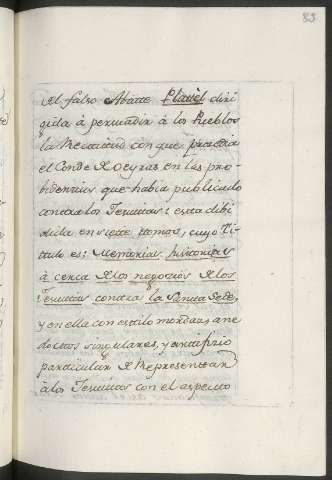 83
el falso Abatte Platiel diri
gida à persuadir à los Pueblos
la Necesidad con que procedia
el Conde de Oeyras en las pro-
bidencias que habia publicado
contra los Jesuitas: esta dibi
dida en siete tomos, cuyo Ti-
tulo es: Memorias historicas
à cerca de los negocios de los
Jesuitas contra la Santa Sede,
y en ella con estilo mordaz, ane
doctas singulares, y artificio
particular de Representar
à los Jesuitas con el aspecto